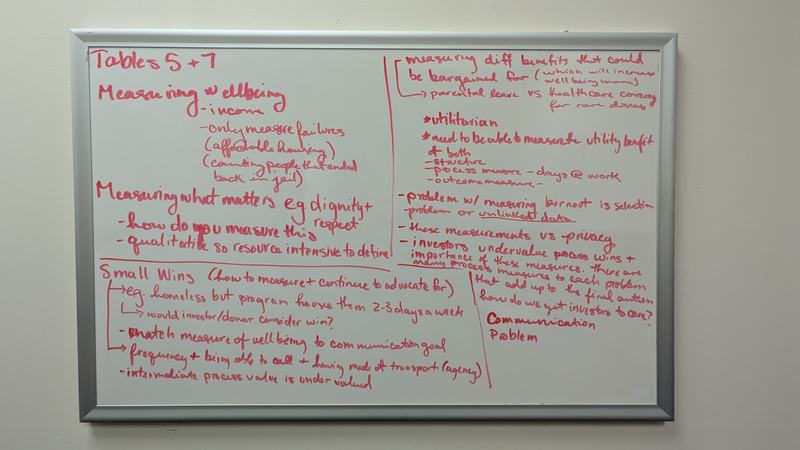 Tables 5 + 7
Measuring wellbeing
- income
- only measure failures
(affordable housing)
(counting people that ended
back in jail)
Measuring what matters eg dignity +
respect
- how do you measure this
- qualitative so resource intensive to define
Small Wins (how to measure + continue to advocate for)
eg. homeless but program houses them 2-3 days a week
would investor/donor consider win?
- match measure of wellbeing to communication goal
frequency + being able to call + having mode of transport (agency)
- intermediate process value is under valued
measuring diff benefits that could
be bargained for (which will increase
wellbeing more)
parental leave vs healthcare coverage
for rare disease
*utilitarian
*need to be able to measure utility benefit
of both
- structure
- process measure - days @ work
- outcome measure -
- problem w/ measuring burnout is selection
problem or unlinked data
- these measurements vs privacy
- investors undervalue process wins +
importance of these measures. there are
many process measures to each problem
that add up to the final outcome
how do we get investors to care?
Communication
Problem